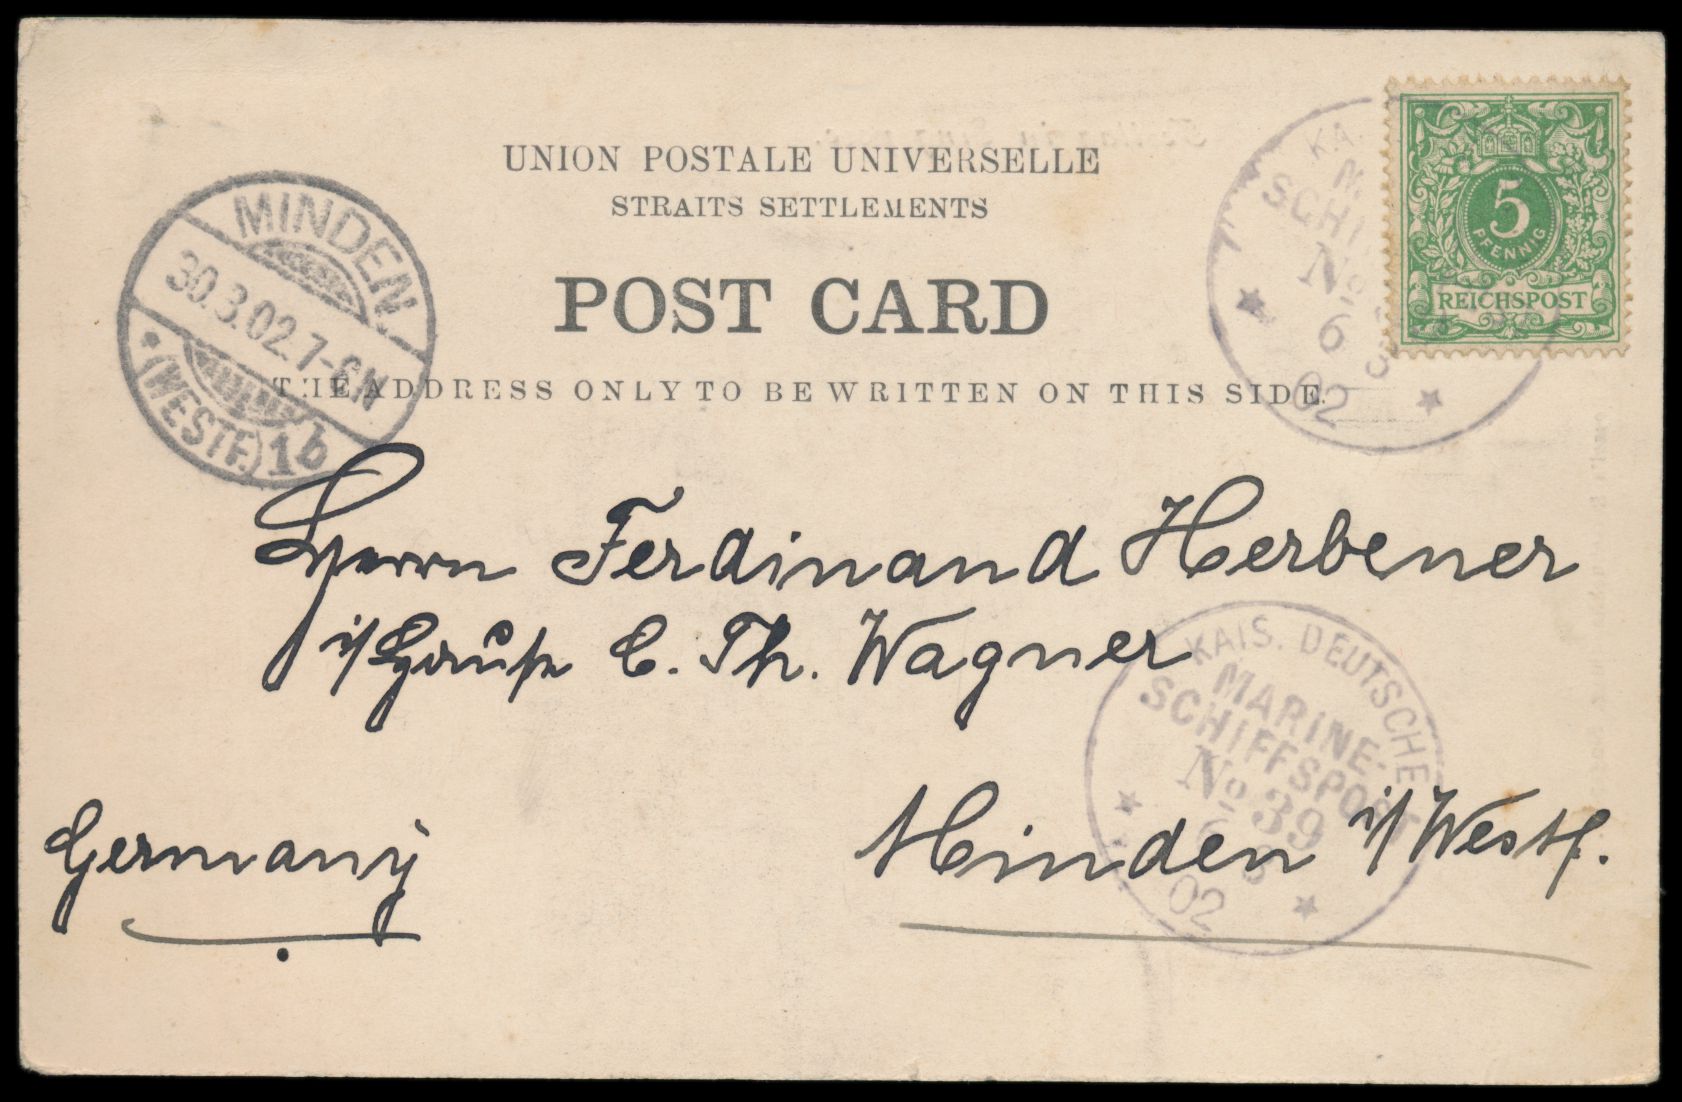 UNION POSTALE UNIVERSELLE
STRAITS SETTLEMENTS
POST CARD
THE ADDRESS ONLY TO BE WRITTEN ON THIS SIDE.
MINDEN
30.3.02.7-8N
* (WESTF.) 1b
5
PFENNIG
REICHSPOST
KA
M
SCHI
No
6
02
Herrn Ferdinand Herbener
i/ C. Th. Wagner
Minden i/Westf.
Germany
KAIS. DEUTSCHE
MARINE-
SCHIFFSPOST
No 39
6 3
02